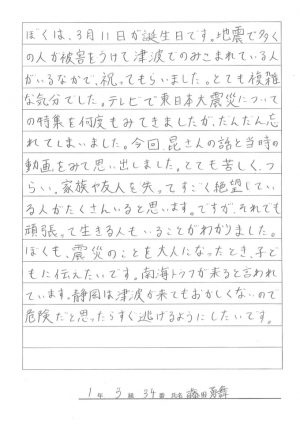 ぼくは、3月11日が誕生日です。地震で多く
の人が被害をうけて津波でのみこまれている人
がいるなかで、祝ってもらいました。とても複雑
な気分でした。テレビで東日本大震災について
の特集を何度もみてきましたが、だんだん忘
れてしまいました。今回、昆さんの話と当時の
動画をみて思い出しました。とても苦しく、つ
らい。家族や友人を失ってすごく絶望してい
る人がたくさんいると思います。ですが、それでも
頑張って生きる人もいることがわかりました。
ぼくも、震災のことを大人になったとき、子ど
もに伝えたいです。南海トラフが来ると言われ
ています。静岡は津波が来てもおかしくないので
危険だと思ったらすぐ逃げるようにしたいです。
1年 3組 34番 氏名 藤田